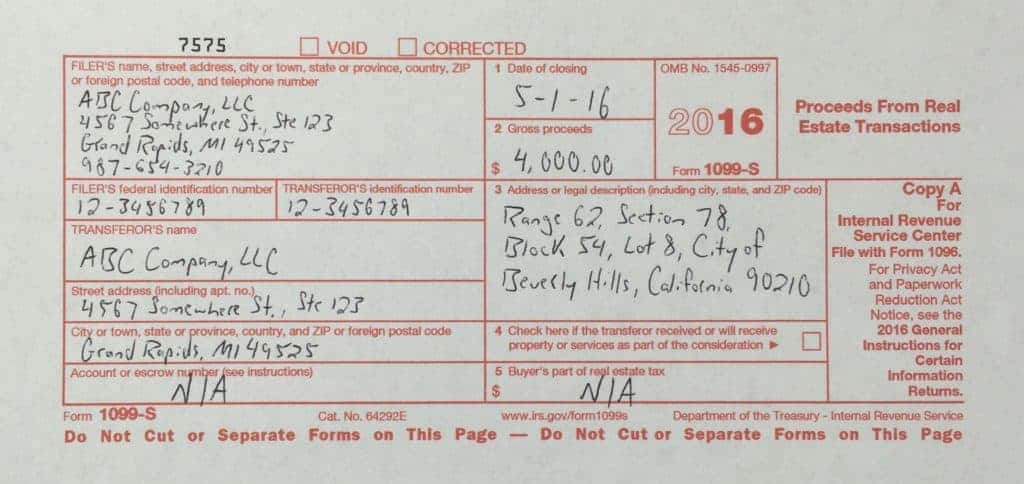 7575 VOID CORRECTED
FILER'S name, street address, city or town, state or province, country, ZIP
or foreign postal code, and telephone number
ABC Company, LLC
4567 Somewhere St., Ste 123
Grand Rapids, MI 49525
987-654-3210
1 Date of closing
5-1-16
2 Gross proceeds
$ 4,000.00
OMB No. 1545-0997
2016
Form 1099-S
Proceeds From Real
Estate Transactions
FILER'S federal identification number
12-3456789
TRANSFEROR'S identification number
12-3456789
3 Address or legal description (including city, state, and ZIP code)
Range 62, Section 78,
Block 54, Lot 8, City of
Beverly Hills, California 90210
TRANSFEROR'S name
ABC Company, LLC
Street address (including apt. no.)
4567 Somewhere St., Ste 123
City or town, state or province, country, and ZIP or foreign postal code
Grand Rapids, MI 49525
4 Check here if the transferor received or will receive
property or services as part of the consideration ►
Account or escrow number (see instructions)
N/A
5 Buyer's part of real estate tax
$ N/A
Copy A
For
Internal Revenue
Service Center
File with Form 1096.
For Privacy Act
and Paperwork
Reduction Act
Notice, see the
2016 General
Instructions for
Certain
Information
Returns.
Form 1099-S Cat. No. 64292E www.irs.gov/form1099s Department of the Treasury - Internal Revenue Service
Do Not Cut or Separate Forms on This Page — Do Not Cut or Separate Forms on This Page